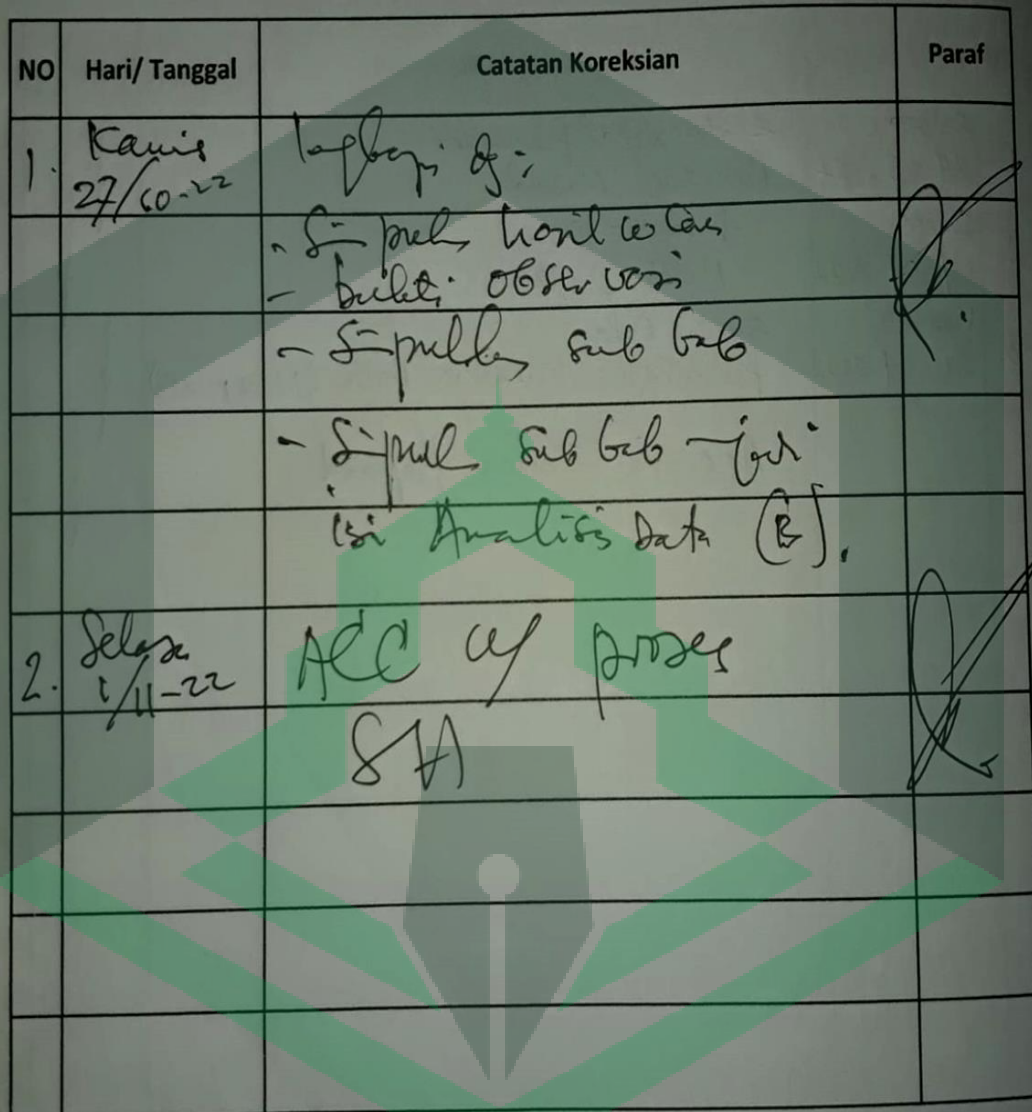 NO Hari/ Tanggal Catatan Koreksian Paraf
1. Kamis
27/10-22
- hasil
- bukti observasi
- Simpulkan sub bab
- Simpul sub bab - jadi
isi Analisis Data (B).
2. Selasa 1/11-22 ACC u/ proses